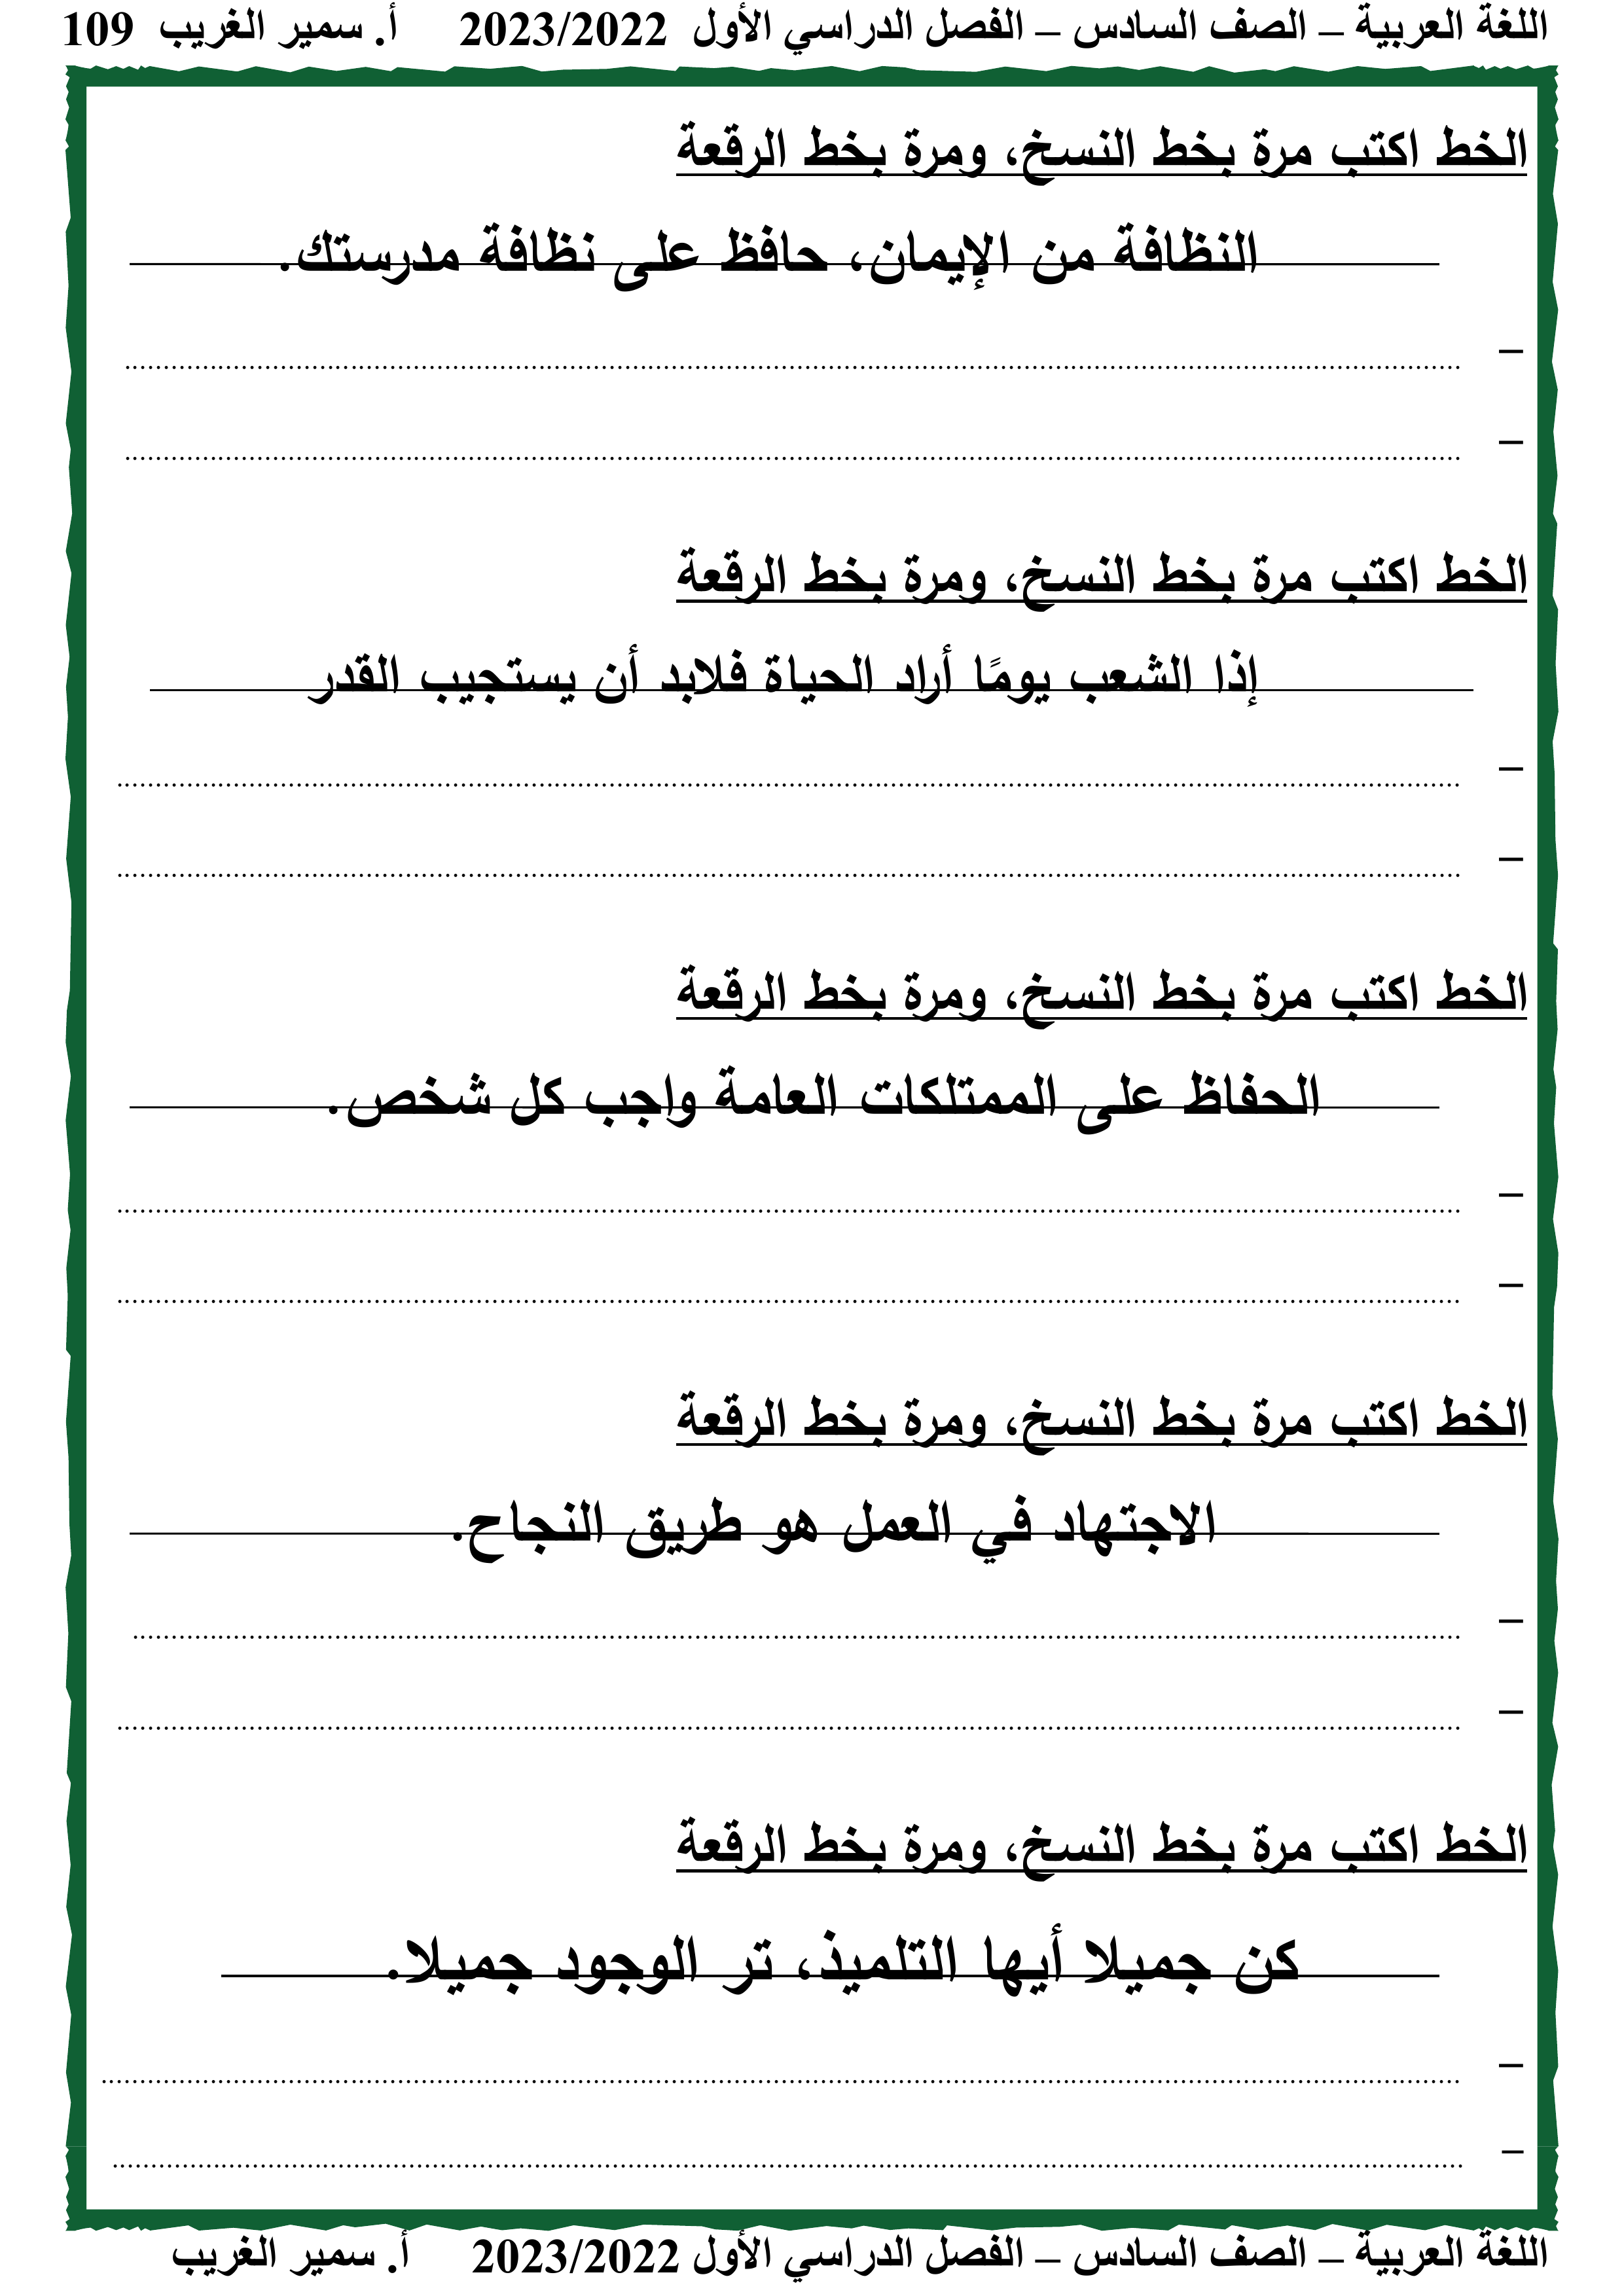 اللغة العربية – الصف السادس – الفصل الدراسي الأول 2023/2022 أ. سمير الغريب 109
الخط اكتب مرة بخط النسخ، ومرة بخط الرقعة
النظافة من الإيمان، حافظ على نظافة مدرستك.
–
–
الخط اكتب مرة بخط النسخ، ومرة بخط الرقعة
إذا الشعب يومًا أراد الحياة فلابد أن يستجيب القدر
–
–
الخط اكتب مرة بخط النسخ، ومرة بخط الرقعة
الحفاظ على الممتلكات العامة واجب كل شخص.
–
–
الخط اكتب مرة بخط النسخ، ومرة بخط الرقعة
الاجتهاد في العمل هو طريق النجاح.
–
–
الخط اكتب مرة بخط النسخ، ومرة بخط الرقعة
كن جميلا أيها التلميذ، تر الوجود جميلا.
–
–
اللغة العربية – الصف السادس – الفصل الدراسي الأول 2023/2022 أ. سمير الغريب